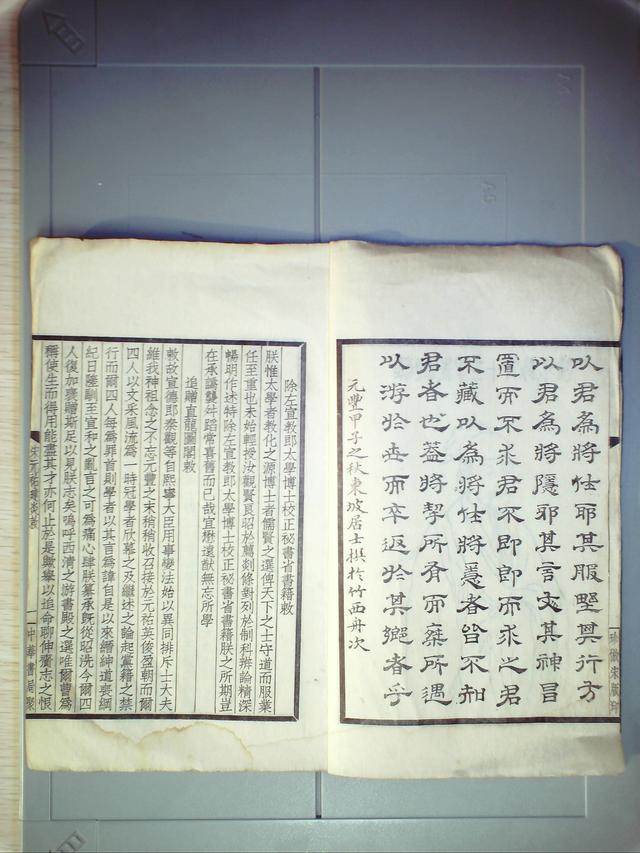 以君為將仕耶其服野其行方
以君為將隱邪其言文其神昌
置而不求君不即即而求之君
不藏以為將仕將隱者皆不知
君者也蓋將挈所有而棄所遇
以游於世而卒返於其鄉者乎
元豐甲子之秋東坡居士撰於竹西舟次
除左宣教郎太學博士校正秘書省書籍敕
朕惟太學者教化之源博士者儒賢之選俾天下之士守道而服業
任至重也未始輕授汝觀賢良昭於薦剡條對列於制科辨論精深
暢明作述特除左宣教郎太學博士校正秘書省書籍朕之所期豈
在承譌襲舛蹈常喜舊而已哉宜懋遠猷無忘所學
追贈直龍圖閣敕
敕故宣德郎秦觀等自熙寧大臣用事變法始以異同排斥士大夫
維我神祖念之不忘元豐之末稍稍收召接於元祐英俊盈朝而爾
四人以文采風流為一時冠學者欣慕之及繼述之論起黨籍之禁
行而爾四人每為罪首則學者以其言為諱自是以來縉紳道喪綱
紀日隳馴至宣和之亂言之可為痛心肆朕纂承既從昭洗今爾四
人復加褒贈斯足以見朕志矣嗚呼西清之游書殿之選唯爾曹為
稱使生而得用能盡其才亦何止於是歟舉以追命聊伸齎志之恨
一中華書局聚
倣宋版印